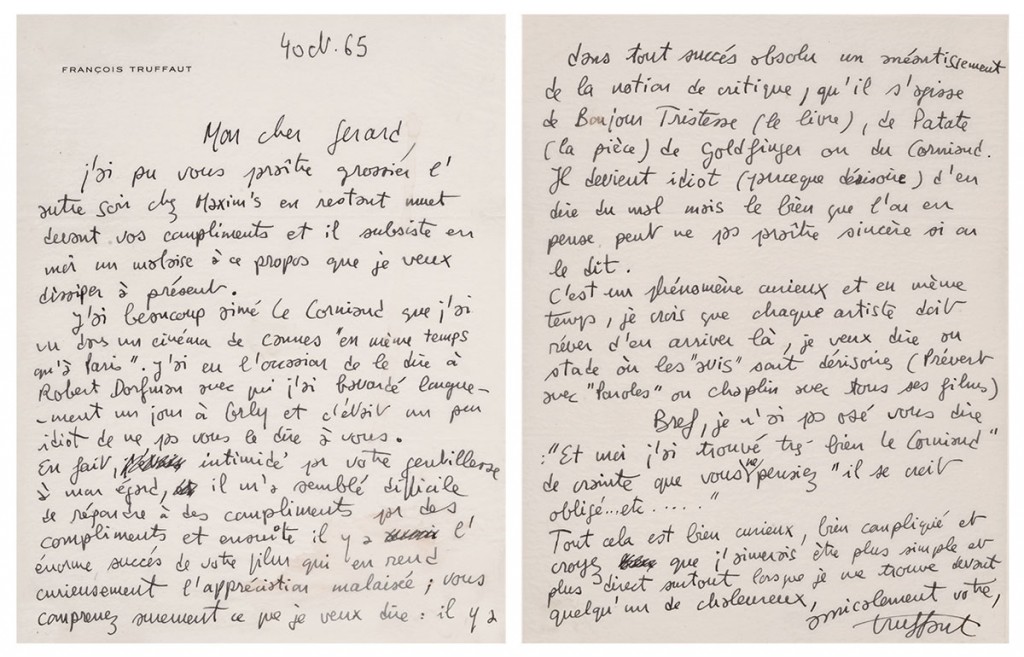 4 oct. 65
FRANÇOIS TRUFFAUT
Mon cher Gerard,
j'ai pu vous praître grossier l'
autre soir chez Maxim's en restant muet
devant vos compliments et il subsiste en
moi un malaise à ce propos que je veux
dissiper à présent.
J'ai beaucoup aimé le Corniaud que j'ai
vu dans un cinéma de Cannes "en même temps
qu'à Paris". J'ai eu l'occasion de le dire à
Robert Dorfman avec qui j'ai bavardé longue-
-ment un jour à Orly et c'était un peu
idiot de ne ps vous le dire à vous.
En fait, intimidé pr votre gentillesse
à mon égard, il m'a semblé difficile
de répondre à des compliments pr des
compliments et ensuite il y a l'
énorme succés de votre film qui en rend
curieusement l'appréciation malaisée ; vous
comprenez surement ce que je veux dire : il y a
dans tout succés absolu un anéantissement
de la notion de critique, qu'il s'agisse
de Bonjour Tristesse (le livre), de Patate
(la pièce) de Goldfinger ou du Corniaud.
Il devient idiot (parceque dérisoire) d'en
dire du mal mais le bien que l'on en
pense peut ne ps praître sincère si on
le dit.
C'est un phénomène curieux et en même
temps, je crois que chaque artiste doit
rêver d'en arriver là, je veux dire au
stade où les "avis" sont dérisoires (Prévert
avec "Paroles" ou chaplin avec tous ses films)
Bref, je n'ai ps osé vous dire
:"Et moi j'ai trouvé trés bien le Corniaud"
de crainte que vous ne pensiez "il se croit
obligé...etc....."
Tout cela est bien curieux, bien compliqué et
croyez que j'aimerais être plus simple et
plus direct surtout lorsque je me trouve devant
quelqu'un de chaleureux, amicalement votre,
truffaut